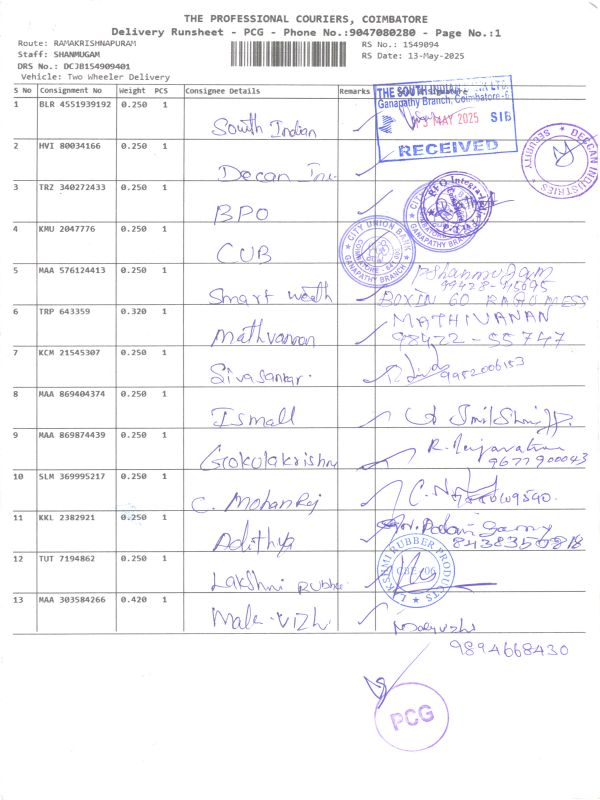 THE PROFESSIONAL COURIERS, COIMBATORE
Delivery Runsheet - PCG - Phone No.:9047080280 - Page No.:1
Route: RAMAKRISHNAPURAM
RS No.: 1549094
Staff: SHANMUGAM
RS Date: 13-May-2025
DRS No.: DCJB154909401
Vehicle: Two Wheeler Delivery
S No Consignment No Weight PCS Consignee Details Remarks
THE SOUTH INDIAN BANK LTD.
Ganapathy Branch, Coimbatore-6
MAY 2025 SIB
RECEIVED
1 BLR 4551939192 0.250 1 South Indian
2 HVI 80034166 0.250 1 Decan Inu
DECCAN INDUSTRIES SECURITY
3 TRZ 340272433 0.250 1 BPO
4 KMU 2047776 0.250 1 CUB
CITY UNION BANK
GANAPATHY BRANCH
5 MAA 576124413 0.250 1 Smart
Shanmugam
BOXIN 60 RAGU MESS
6 TRP 643359 0.320 1 Mathvanan
MATHIVANAN
98422-55747
7 KCM 21545307 0.250 1 Sivasankar. 9952006153
8 MAA 869404374 0.250 1 Ismail
9 MAA 869874439 0.250 1 Gokulakrishna
9677900043
10 SLM 369995217 0.250 1 C. MohanRaj
11 KKL 2382921 0.250 1 Adithya
12 TUT 7194862 0.250 1 Lakshmi Rubbe
LAKSHMI RUBBER PRODUCTS
CBE-06
13 MAA 303584266 0.420 1 Malar vizhi
9894668430
PCG